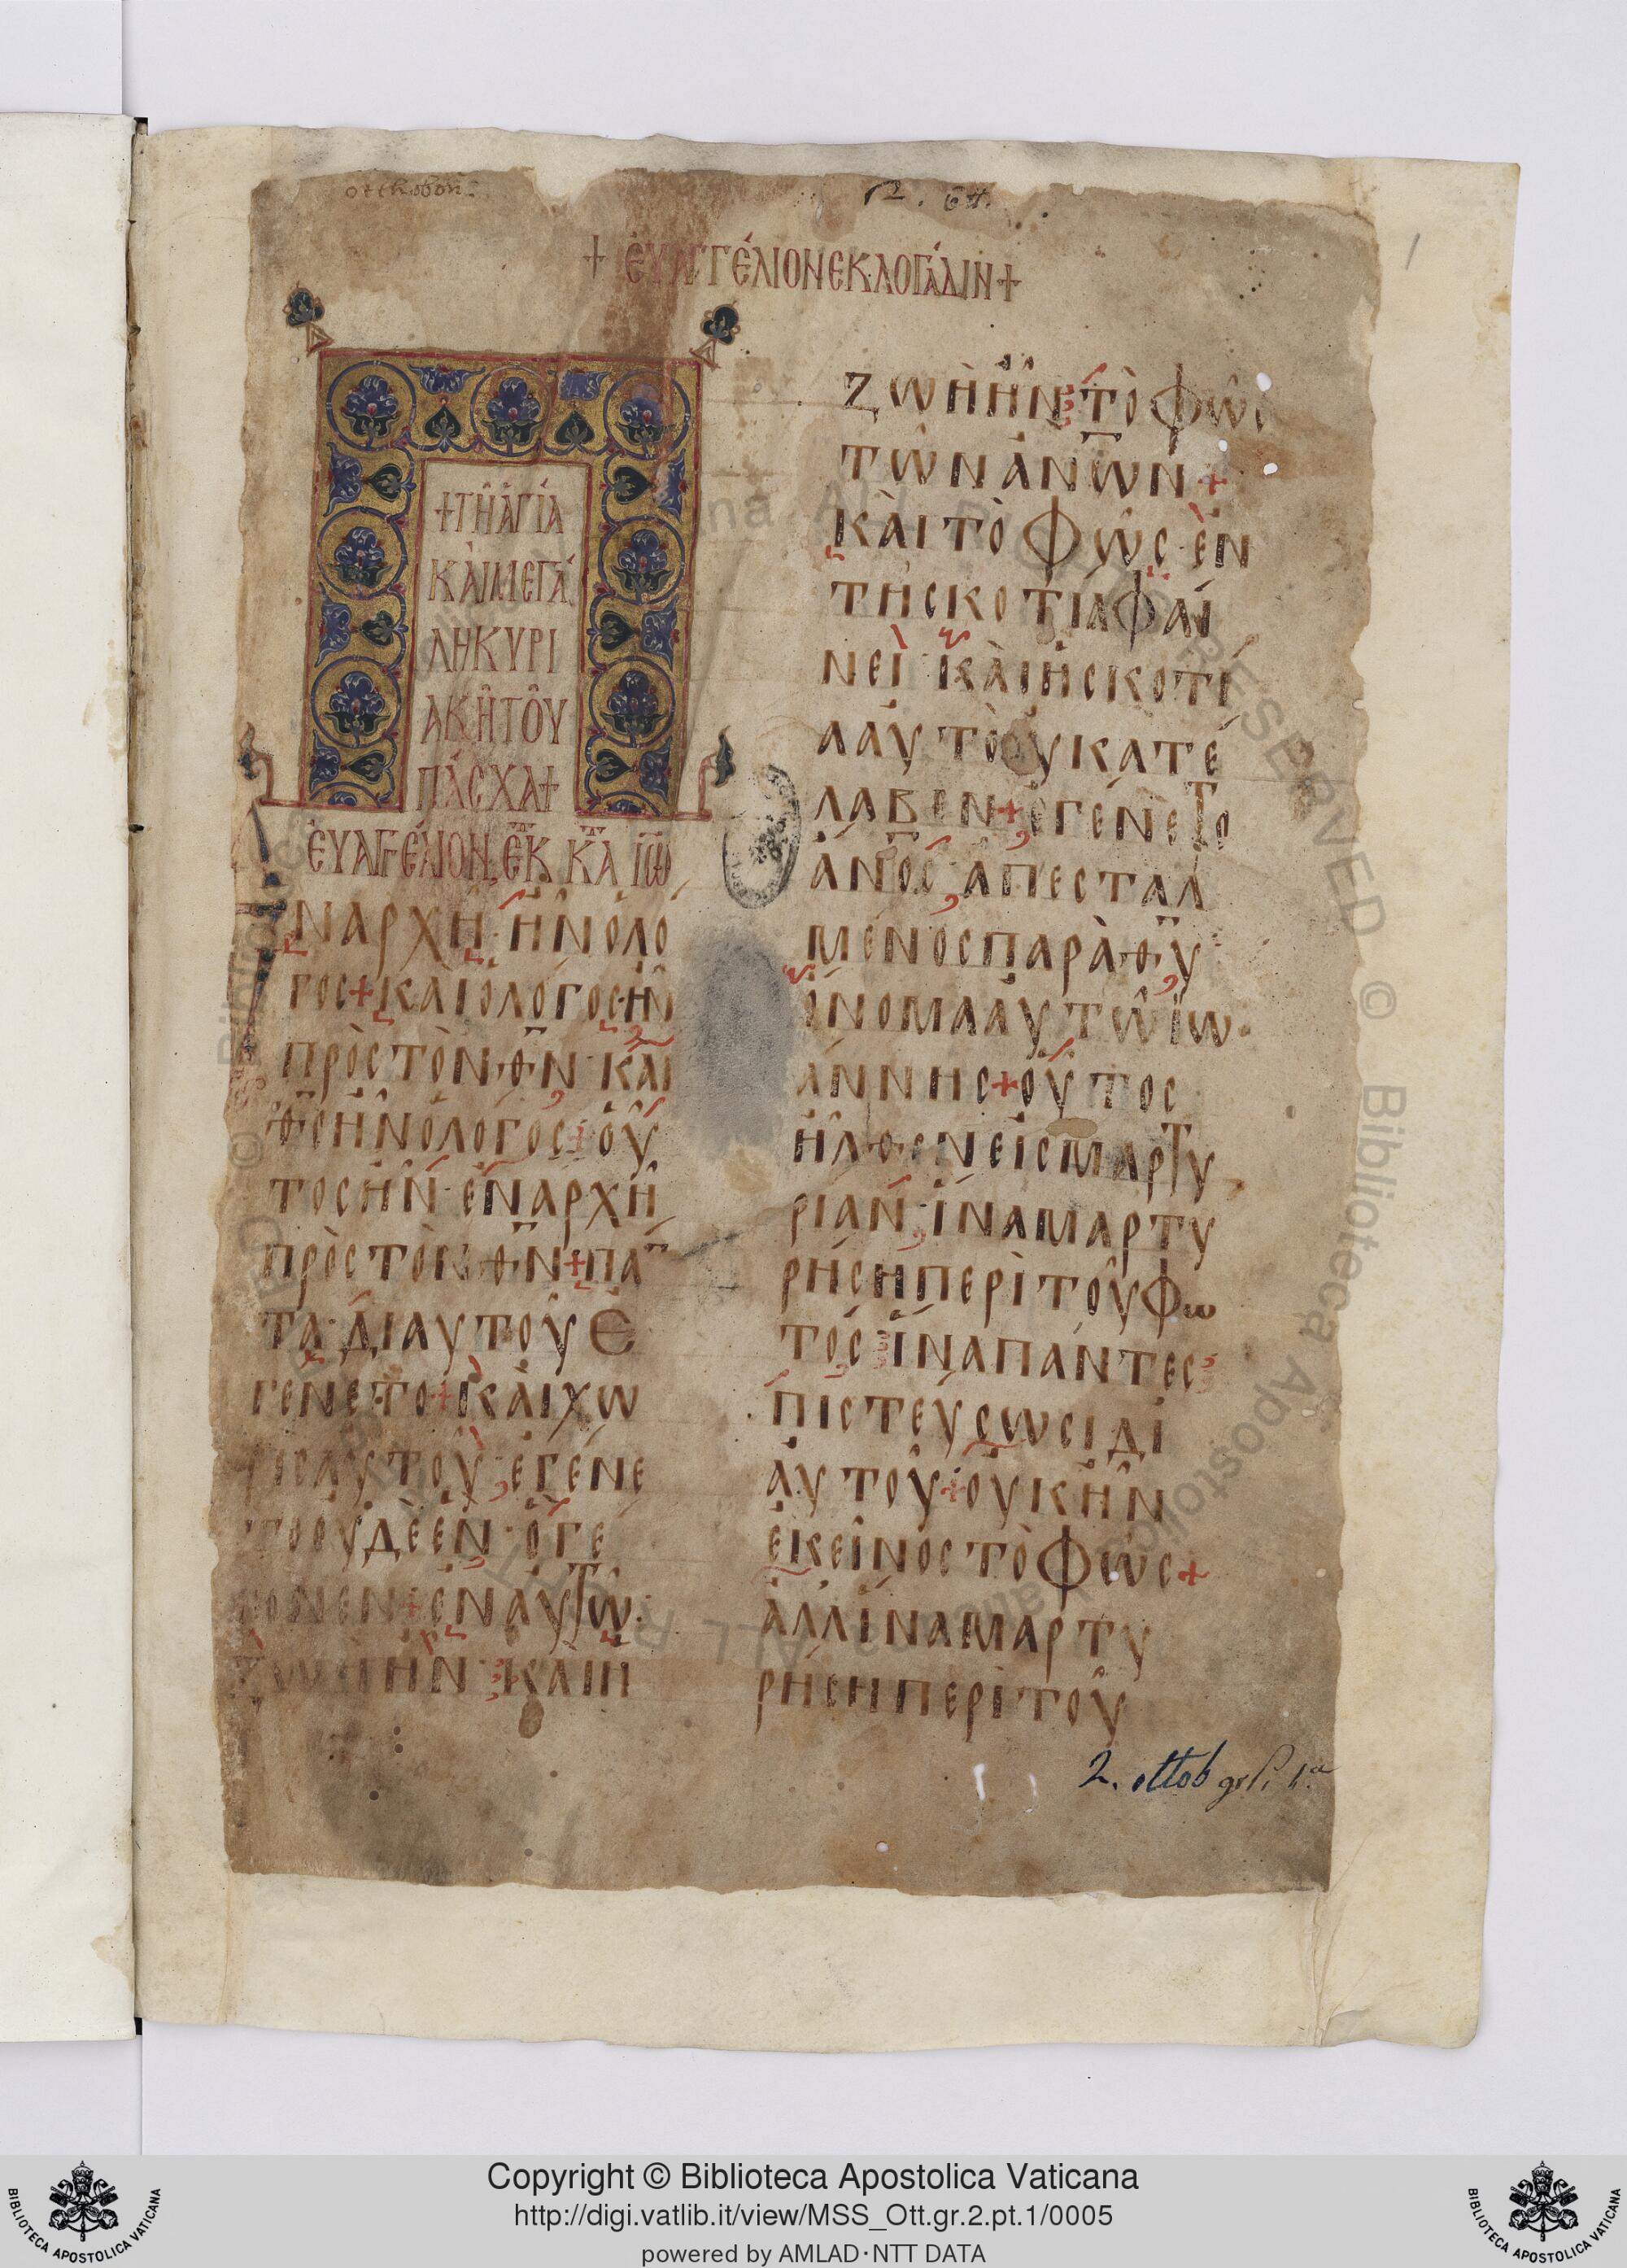 otthobon.
R. 64.
1
+ ΕΥΑΓΓΕΛΙΟΝ ΕΚΛΟΓΑΔΙΝ +
+ ΤΗ ΑΓΙΑ
ΚΑΙ ΜΕΓΑ
ΛΗ ΚΥΡΙ
ΑΚΗ ΤΟΥ
ΠΑΣΧΑ +
ΕΥΑΓΓΕΛΙΟΝ ΕΚ ΚΑ ΙΩ
Ν ΑΡΧΗ ΗΝ Ο ΛΟ
ΓΟС + ΚΑΙ Ο ΛΟΓΟС ΗΝ
ΠΡΟС ΤΟΝ ΘΝ ΚΑΙ
ΘС ΗΝ Ο ΛΟΓΟС + ΟΥ
ΤΟС ΗΝ ΕΝ ΑΡΧΗ
ΠΡΟС ΤΟΝ ΘΝ + ΠΑ
ΤΑ ΔΙ ΑΥΤΟΥ Ε
ΓΕΝΕΤΟ + ΚΑΙ ΧΩ
ΡΙС ΑΥΤΟΥ ΕΓΕΝΕ
ΤΟ ΟΥΔΕ ΕΝ Ο ΓΕ
ΓΟΝΕΝ + ΕΝ ΑΥΤΩ
ΖΩΗ ΗΝ ΚΑΙ Η
ΖΩΗ ΗΝ ΤΟ ΦΩС
ΤΩΝ ΑΝΩΝ +
ΚΑΙ ΤΟ ΦΩС ΕΝ
ΤΗ СΚΟΤΙΑ ΦΑΙ
ΝΕΙ ΚΑΙ Η СΚΟΤΙ
Α ΑΥΤΟ ΟΥ ΚΑΤΕ
ΛΑΒΕΝ + ΕΓΕΝΕΤΟ
ΑΝΟС ΑΠΕСΤΑΛ
ΜΕΝΟС ΠΑΡΑ ΘΥ
ΟΝΟΜΑ ΑΥΤΩ ΙΩ
ΑΝΝΗС + ΟΥΤΟС
ΗΛΘΕΝ ΕΙС ΜΑΡΤΥ
ΡΙΑΝ ΙΝΑ ΜΑΡΤΥ
ΡΗСΗ ΠΕΡΙ ΤΟΥ ΦΩ
ΤΟС ΙΝΑ ΠΑΝΤΕС
ΠΙСΤΕΥСΩСΙ ΔΙ
ΑΥΤΟΥ + ΟΥΚ ΗΝ
ΕΚΕΙΝΟС ΤΟ ΦΩС +
ΑΛΛ ΙΝΑ ΜΑΡΤΥ
ΡΗСΗ ΠΕΡΙ ΤΟΥ
2. ottob gr P. 1.a
Copyright © Biblioteca Apostolica Vaticana
http://digi.vatlib.it/view/MSS_Ott.gr.2.pt.1/0005
powered by AMLAD·NTT DATA
BIBLIOTECA APOSTOLICA VATICANA
BIBLIOTECA APOSTOLICA VATICANA